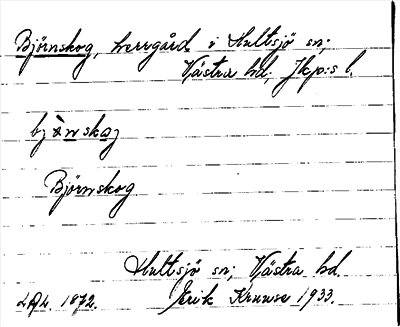 Björnskog, herrgård i Hultsjö sn;
Västra hd, Jkp:s l.
Björnskog
Hultsjö sn; Västra hd.
1872. Erik Kruuse 1933.